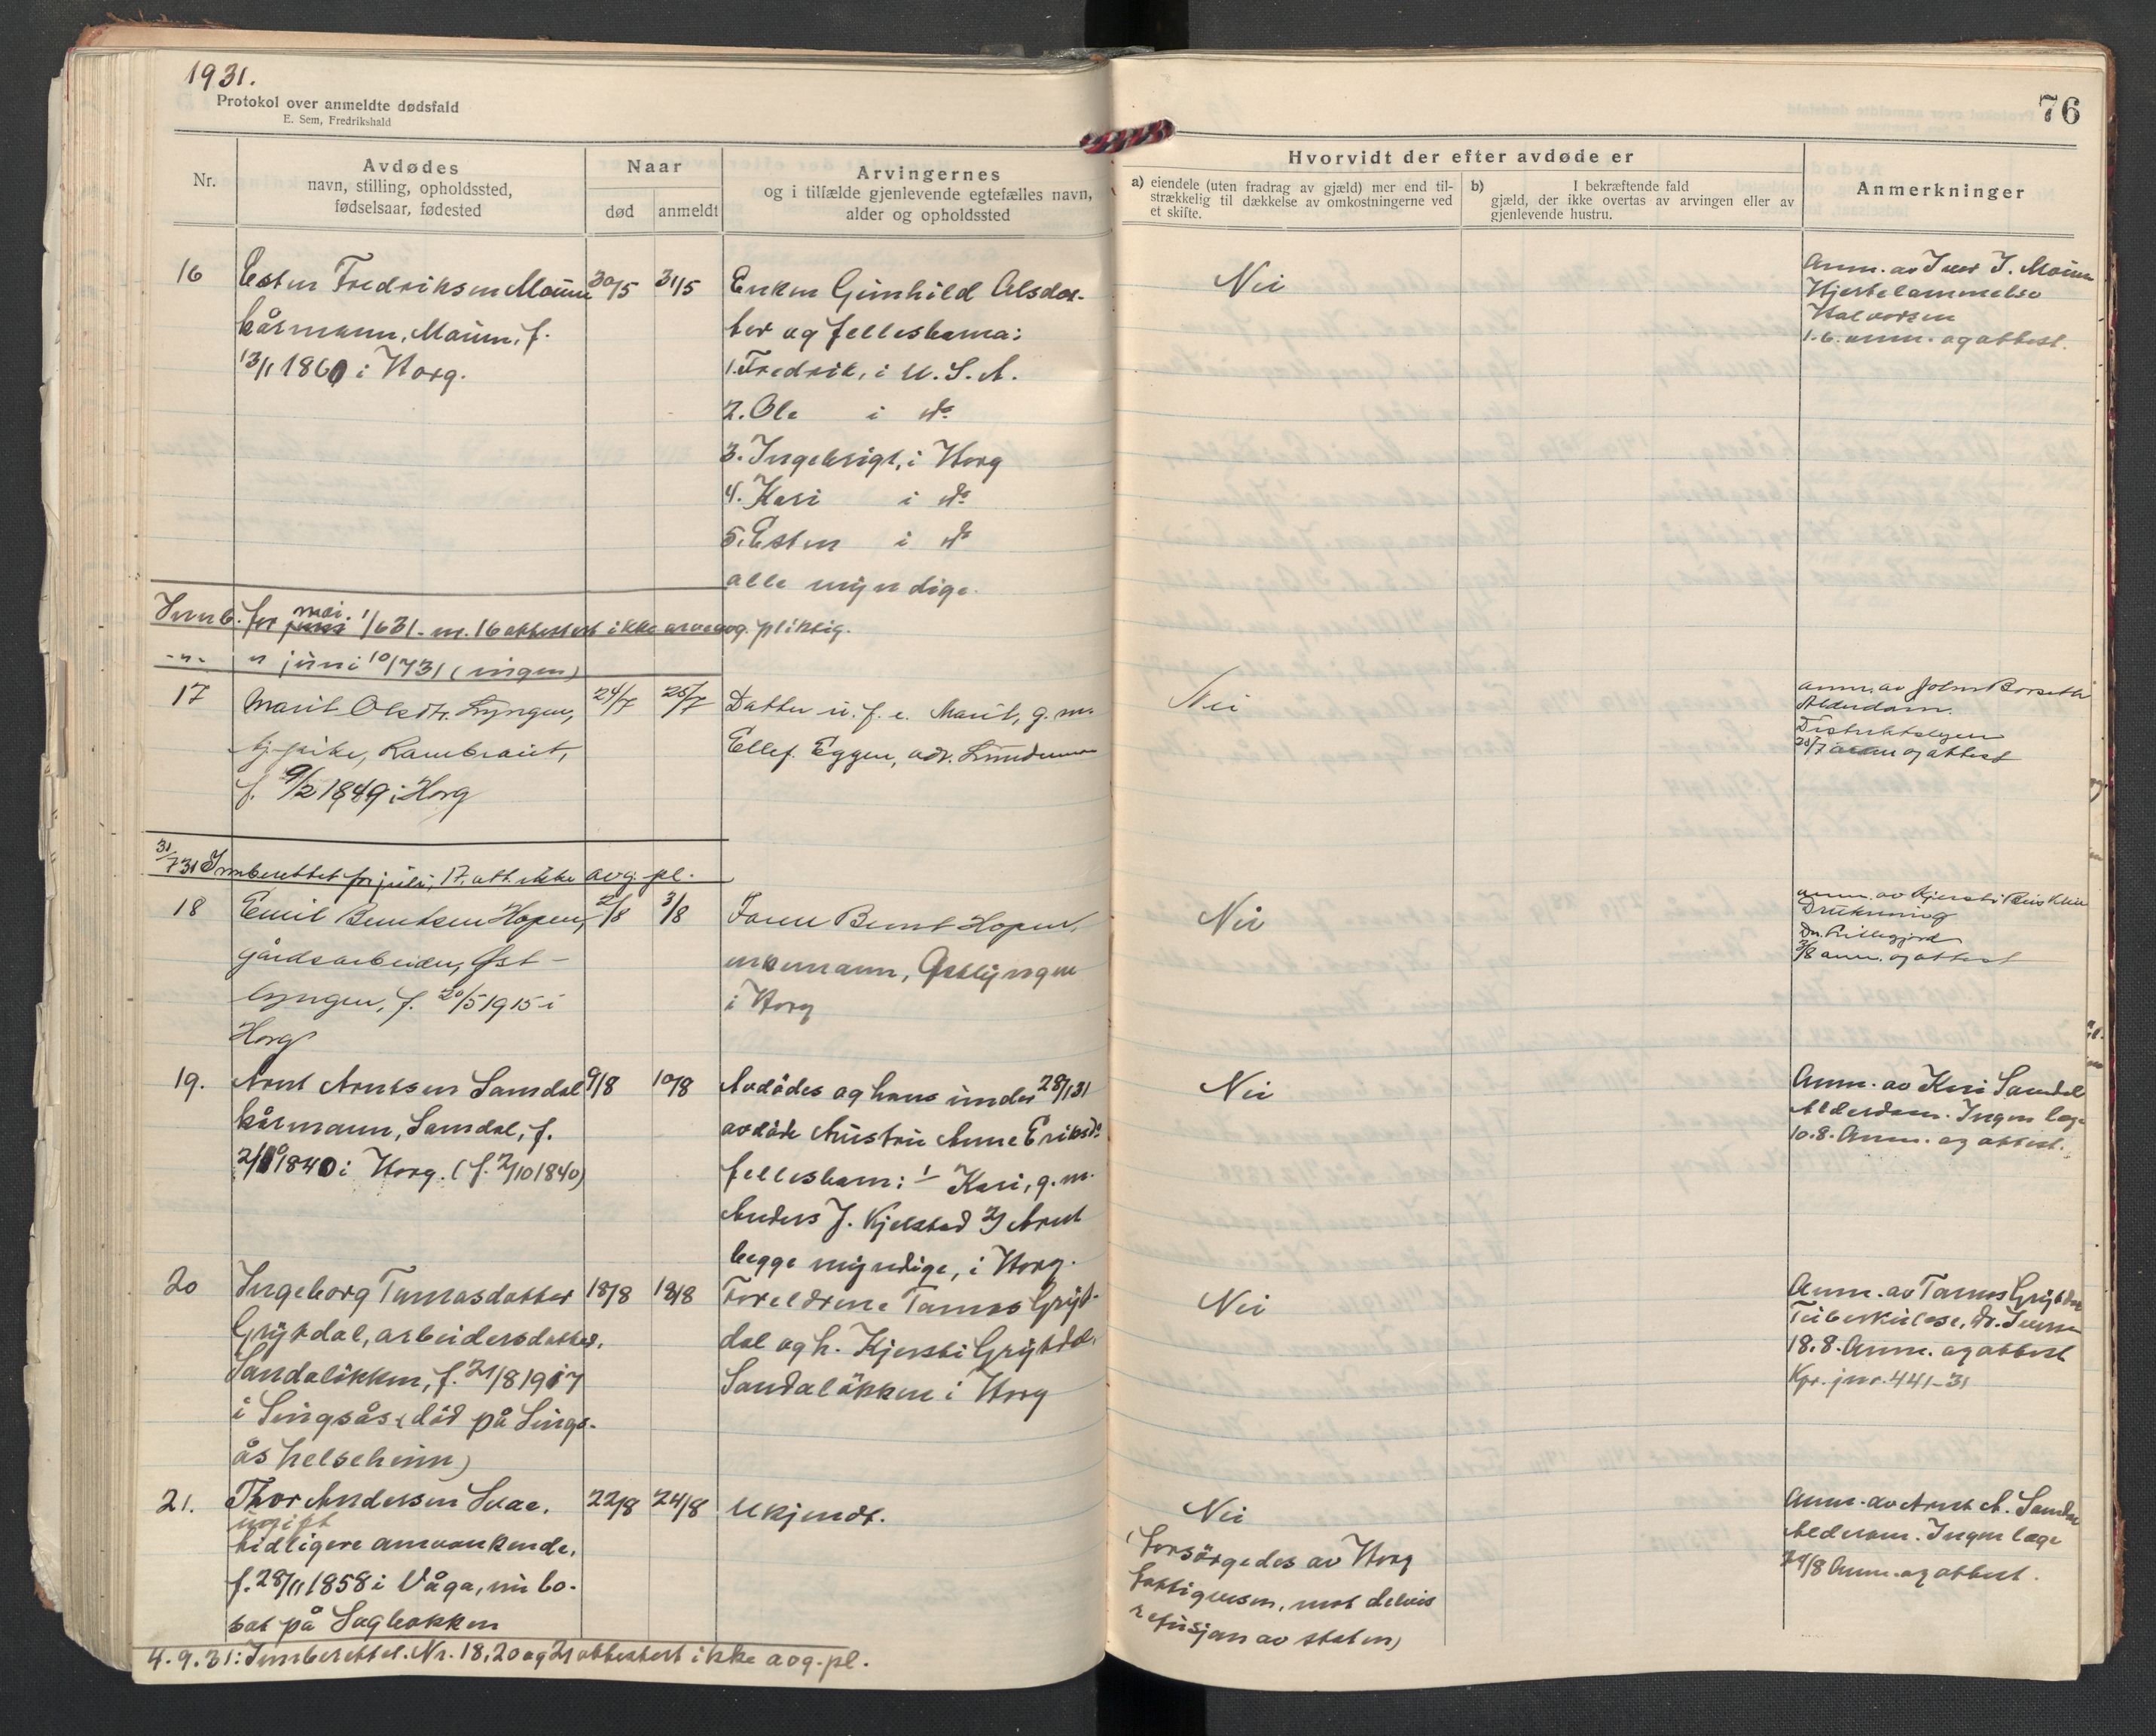 1931.
Protokol over anmeldte dødsfald
E. Sem, Fredrikshald
76
Nr.
Avdødes
navn, stilling, opholdssted,
fødselsaar, fødested
Naar
død
anmeldt
Arvingernes
og i tilfælde gjenlevende egtefælles navn,
alder og opholdssted
Hvorvidt der efter avdøde er
a) eiendele (uten fradrag av gjæld) mer end til-
strækkelig til dækkelse av omkostningerne ved
et skifte.
b) I bekræftende fald
gjæld, der ikke overtas av arvingen eller av
gjenlevende hustru.
Anmerkninger
16
Esten Fredriksen Mouum
kårmann, Mouum, f.
13/11 1860 i Horg.
30/5
31/5
Enken Gunhild Olsdat-
ter og fellesbarna:
1. Fredrik, i U.S.A.
2. Ole i do
3. Ingebrigt, i Horg
4. Kari i do
5. Esten i do
alle myndige.
Nei
Anm. av Iver J. Mouum
Hjertelammelse
Halvorsen
1.6. anm. og attest.
Innb. for juni mai 1/6 31. nr. 16 attestert ikke arveavg. pliktig.
-"- " juni 10/7 31 (ingen)
17
Marit Olsdtr. Lyngen,
f. 9/2 1849 i Horg
24/7
25/7
Datter u. f. e. Marit, g. m.
Ellef Eggen, adr.
Nei
anm. av John
Alderdom.
Distriktslegen
25/7 anm og attest
31/7 31 Innberettet for juli, 17, att. ikke avg. pl.
18
Emil Berntsen Hopen,
gårdsarbeider, Øst-
lyngen, f. 20/5 1915 i
Horg
2/8
3/8
Faren Bernt Hopen,
enkemann, Østlyngen
i Horg
Nei
anm. av Kjersti
Drukning
Dr. Lillegjord
3/8 anm. og attest
19.
Arnt Arntsen Samdal
kårmann, Samdal, f.
2/10 1840 i Horg. (f. 2/10 1840)
9/8
10/8
Avdødes og hans under 28/1 31
avdøde hustru Anne Eriksd.
fellesbarn: 1/ Kari, g. m.
Anders J. Kjelstad 2/ Arnt
begge myndige, i Horg.
Nei
Anm. av Kari Samdal
Alderdom. Ingen læge
10.8. Anm. og attest.
20
Ingeborg Tamasdatter
Grytdal, arbeidersdatter,
Sandaløkken, f. 21/8 1917
i Singsås (død på Sings-
ås helseheim)
18/8
18/8
Foreldrene Tamas Gryt-
dal og h. Kjersti Grytdal
Sandaløkken i Horg
Nei
Anm. av Tamas Grytdal
Tuberkulose, dr. Iversen
18.8. Anm. og attest
Kpr. jnr. 441-31
21.
Thor Andersen Svae,
ugift
tidligere omvankende,
f. 28/11 1858 i Våga, nu bo-
sat på Sagbakken
22/8
24/8
Ukjendt.
Nei
(forsørgedes av Horg
fattigvesen, mot delvis
refusjon av staten)
Anm. av Arnt A. Samdal
Alderdom. Ingen læge
24/8 Anm. og attest.
4.9.31: Innberettet. Nr. 18, 20 og 21 attestert ikke avg. pl.